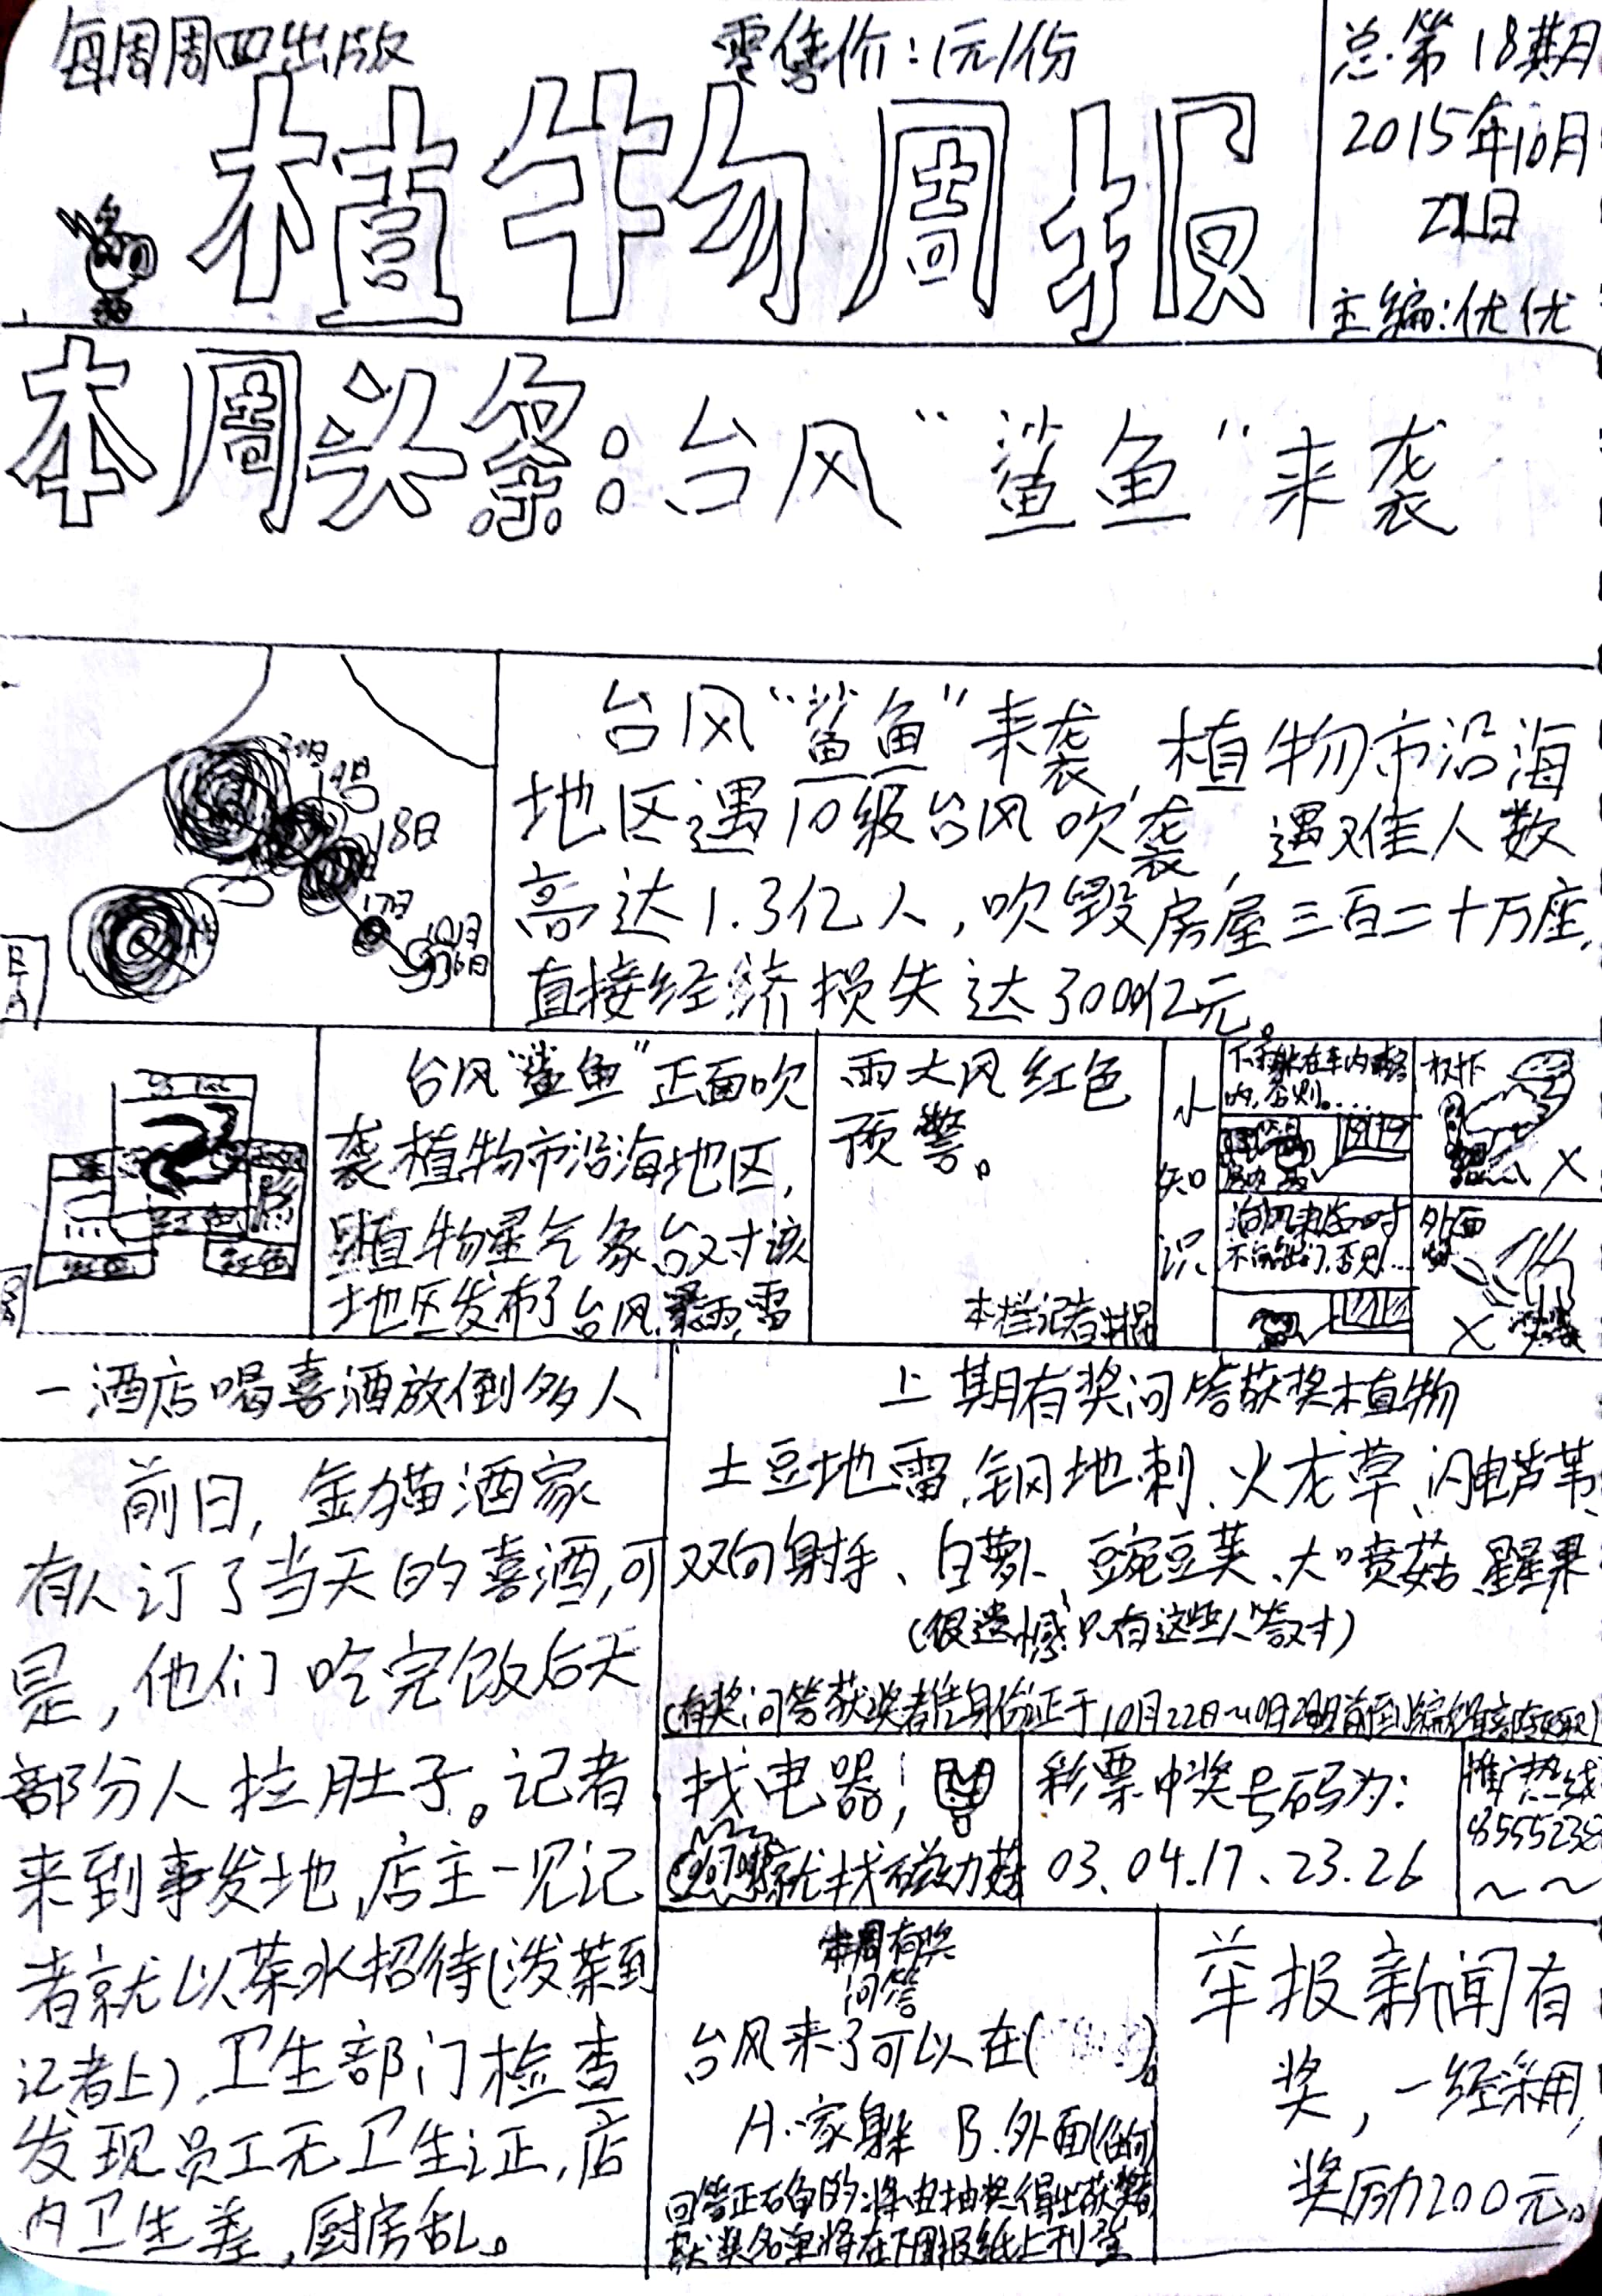 每周周四出版
零售价：1元/份
总第18期
2015年10月
植物周报
主编：优优
本周头条：台风“鲨鱼”来袭
台风“鲨鱼”来袭，植物市沿海
地区遇10级台风吹袭，遇难人数
高达1.3亿人，吹毁房屋三百二十万座，
直接经济损失达3000亿元。
20日
19日
18日
17日
台风“鲨鱼”正面吹
袭植物市沿海地区，
植物星气象台对该
地区发布了台风、暴雨、雷
雨大风红色
预警。
本栏记者
小
知
识
外面
一酒店喝喜酒放倒多人
前日，金猫酒家
有人订了当天的喜酒，可
是，他们吃完饭后天
部分人拉肚子。记者
来到事发地，店主一见记
者就以茶水招待（泼茶到
记者上），卫生部门检查
发现员工无卫生证，店
内卫生差，厨房乱。
上期有奖问答获奖植物
土豆地雷、钢地刺、火龙草、闪电芦苇、
双向射手、白萝卜、豌豆荚、大喷菇、星星果
（很遗憾只有这些人答对）
找电器，
就找磁力菇
彩票中奖号码为：
03、04、17、23、26
推广热线
8555238
～～
本周有奖
问答
台风来了可以在（ ）。
A.家躲 B.外面
回答正确的将由抽奖得出获奖者，
获奖名单将在下周报纸上刊登
举报新闻有
奖，一经采用，
奖励200元。